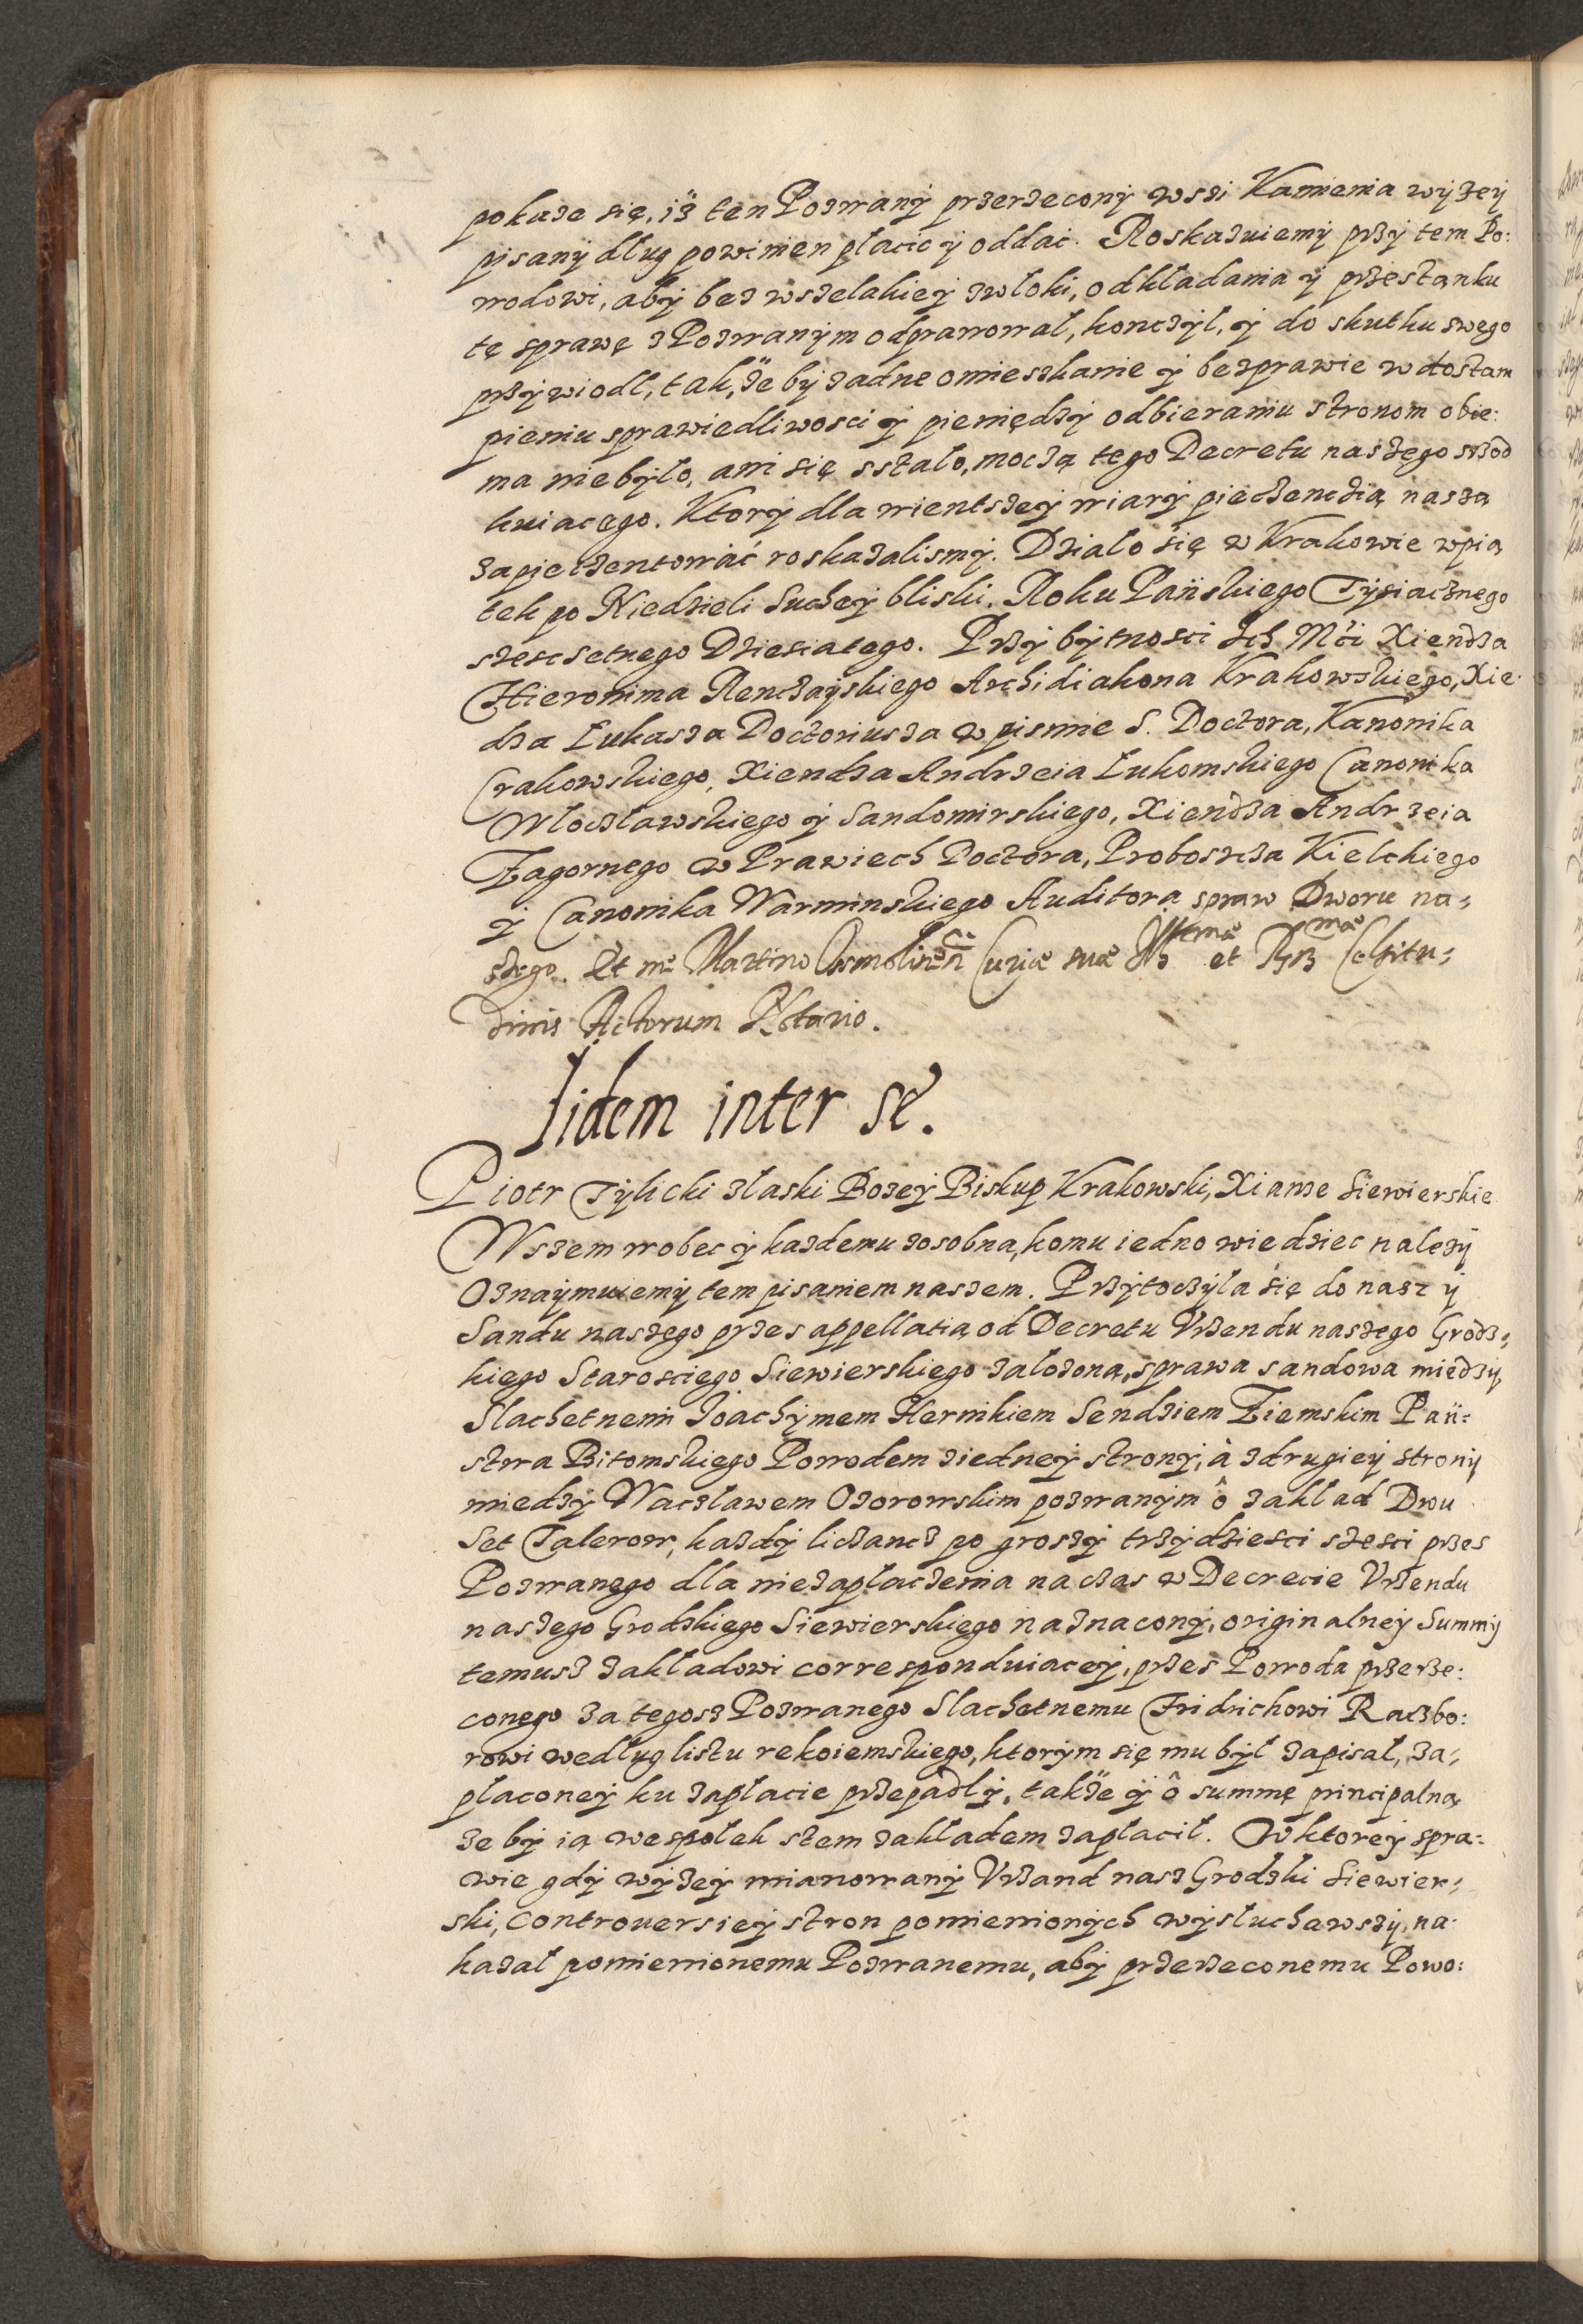 pokaze się, iż ten Pozwany przerzecony wssi Kamienia wyzey
pisany dług powinien płacic y oddać. Roskazuiemy przy tem Po:
wodowi, aby bez wszelakiey zwłoki, odkładania y przestanku
tę sprawę z Pozwanym odprawował, konczył, y do skutku swego
przywiodł, tak, że by zadne omieszkanie y bezprawie w dostam
pieniu sprawiedliwosci y pieniędzy odbieraniu stronom obie:
ma nie było, ani się sstało, moczą tego Decretu naszego szod
kuiacego. Ktory dla wientszey wiary pieczenczią naszą
zapieczentować roskazalismy. Dzialo się w Krakowie wpią
tek po Niedzieli Suchey bliski. Roku Pańskiego Tysiacznego
szescsetnego Dziesiatego. Przy bytnosci Ich Mći Xiendza
Hieronima Renczayskiego Archidiakona Krakowskiego, Xie
dza Łukasza Doctoriusza w pismie S. Doctora, Kanonika
Crakowskiego, Xiendza Andrzeia Łukomskiego Canonika
Włocławskiego y Sandomirskiego, Xiendza Andrzeia
Zagornego w Prawiech Doctora, Proboszcza Kielckiego
y Canonika Warminskiego Auditora spraw Dworu na:
szego. Et me Martino Curiæ suæ Illmæ et Rmæ Celsitu:
dinis Actorum Notario.
Iidem inter se.
Piotr Tylicki złaski Bozey Biskup Krakowski, Xiaże Siewierskie
Wszem wobec y kazdemu zosobna, komu iedno wiedziec nalezy
Oznaymuiemy tem pisaniem naszem. Przytoczyla się do nasz y
Sandu naszego przes appellatią od Decretu Vrzendu naszego Grodz:
kiego Starosciego Siewierskiego zalozona, sprawa sandowa miedzy
Slachetnemi Joachymem Hernikiem Sendziem Ziemskim Pań:
stwa Bitomskiego Powodem ziedney strony, à zdrugiey strony
miedzy Wacławem Ozorowskim pozwanym ô zakład Dwu
Set Talerow, kazdy liczancz po groszy trzydziesci szesci przes
Pozwanego dla niezapłaczenia na czas w Decrecie Vrzendu
naszego Grodzkiego Siewierskiego naznacony, originalney Summy
temusz zakładowi correspónduiacey, przes Powoda przerze:
conego za tegosz Pozwanego Slachetnemu Fridrichowi Raczbo:
rowi według listu rekoiemskiego, ktorym się mu był zapisał, za:
płaconey ku zapłacie przepadły, także y ô summę principalną
ze by ią wespołek stem zakładem zapłacił. W ktorey spra:
wie gdy wyzey mianowany Vrzand nasz Grodzki Siewier:
ski, controuersiey stron pomienionych wysłuchawszy, na:
kazał pomienionemu Pozwanemu, aby przerzeconemu Powo: